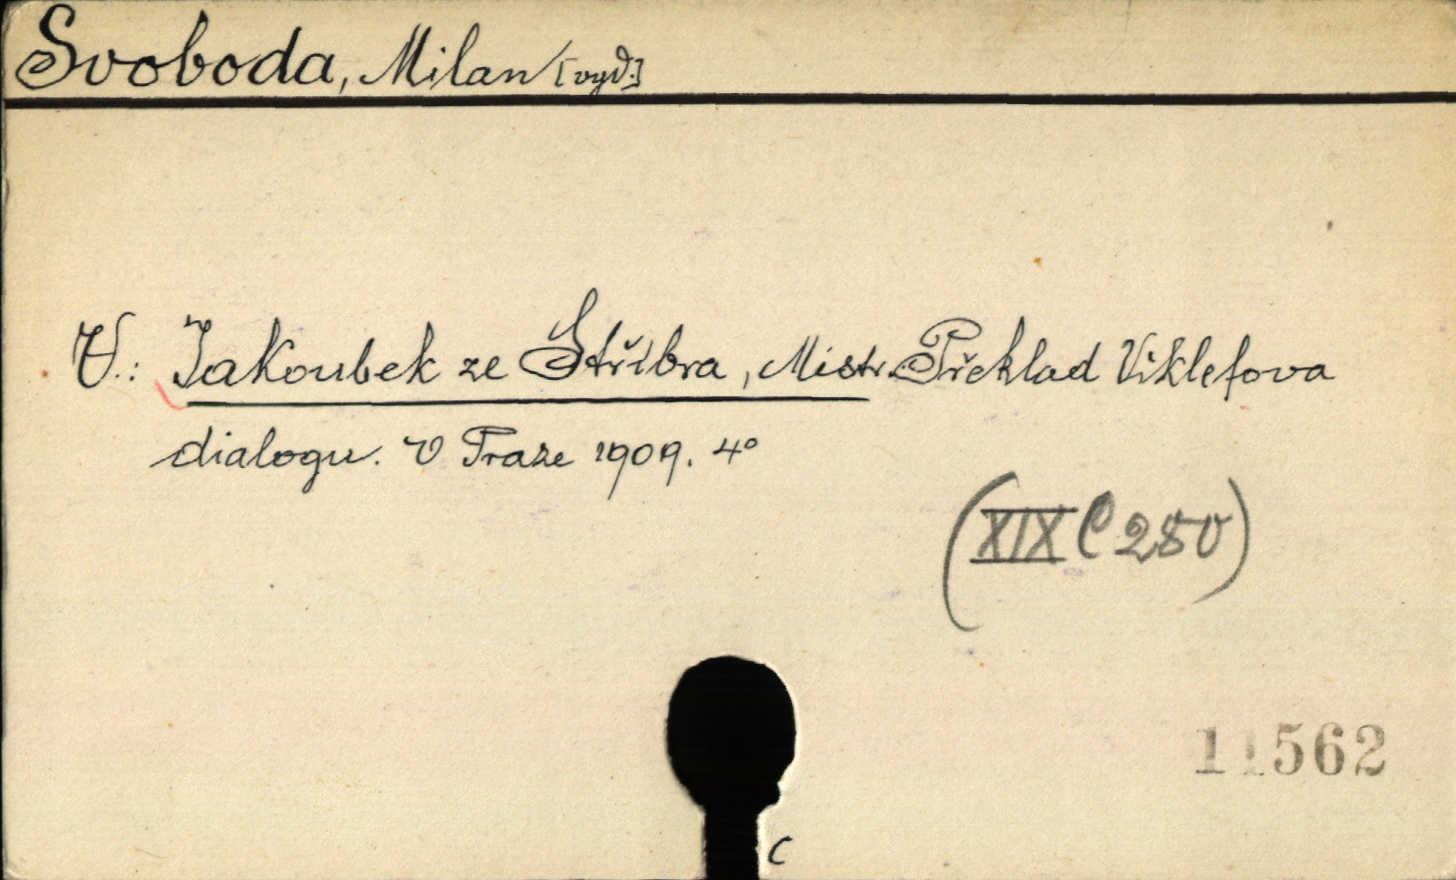 Svoboda, Milan [vyd.]
V.: Jakoubek ze Stříbra, Mistr. Překlad Viklefova
dialogu. V Praze 1909. 4°
(XIX C 280)
11562
C